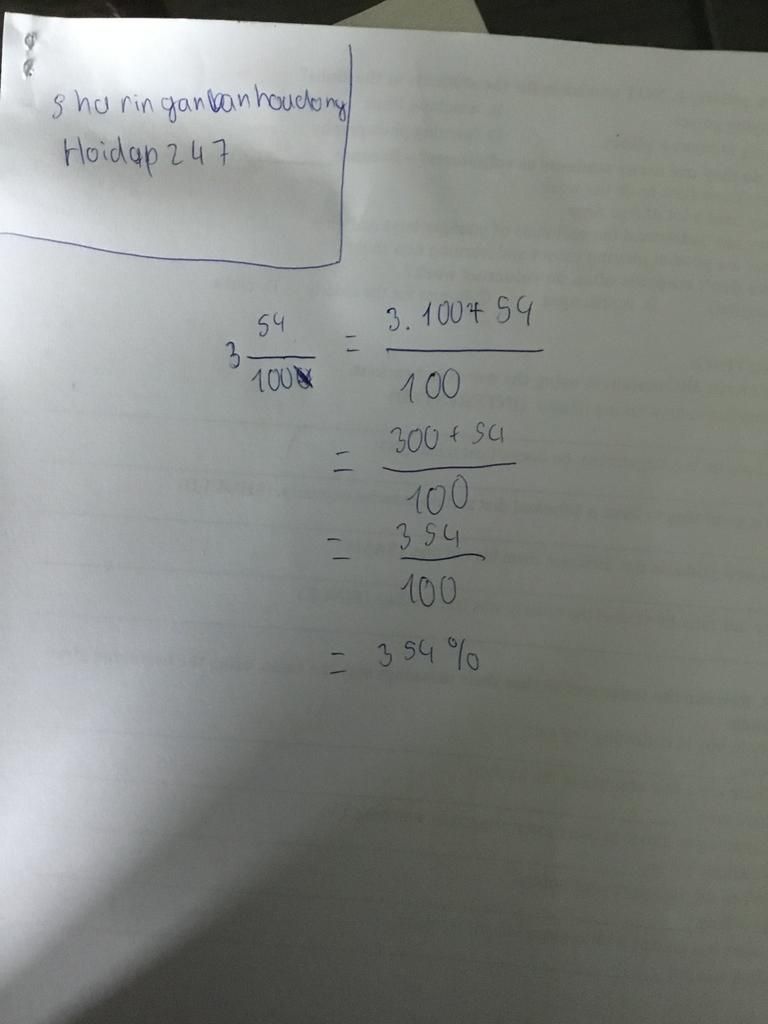 sharinganbanhoudong
Hoidap247
3 54/100 = 3.100+54/100
= 300+54/100
= 354/100
= 354%